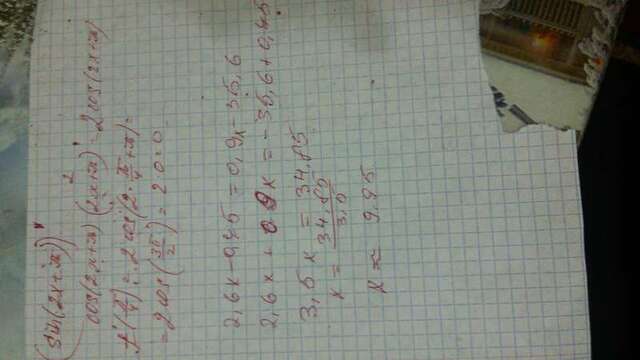 (sin(2x+π))'
cos(2x+π)(2x+π)' = 2cos(2x+π)
f'(π/4) = 2cos(2·π/4+π) =
= 2cos(3π/2) = 2·0 = 0
2,6x - 0,45 = 0,9x - 35,6
2,6x + 0,9x = -35,6 + 0,45
3,5x = 34,85
x = 34,85/3,5
x = 9,95